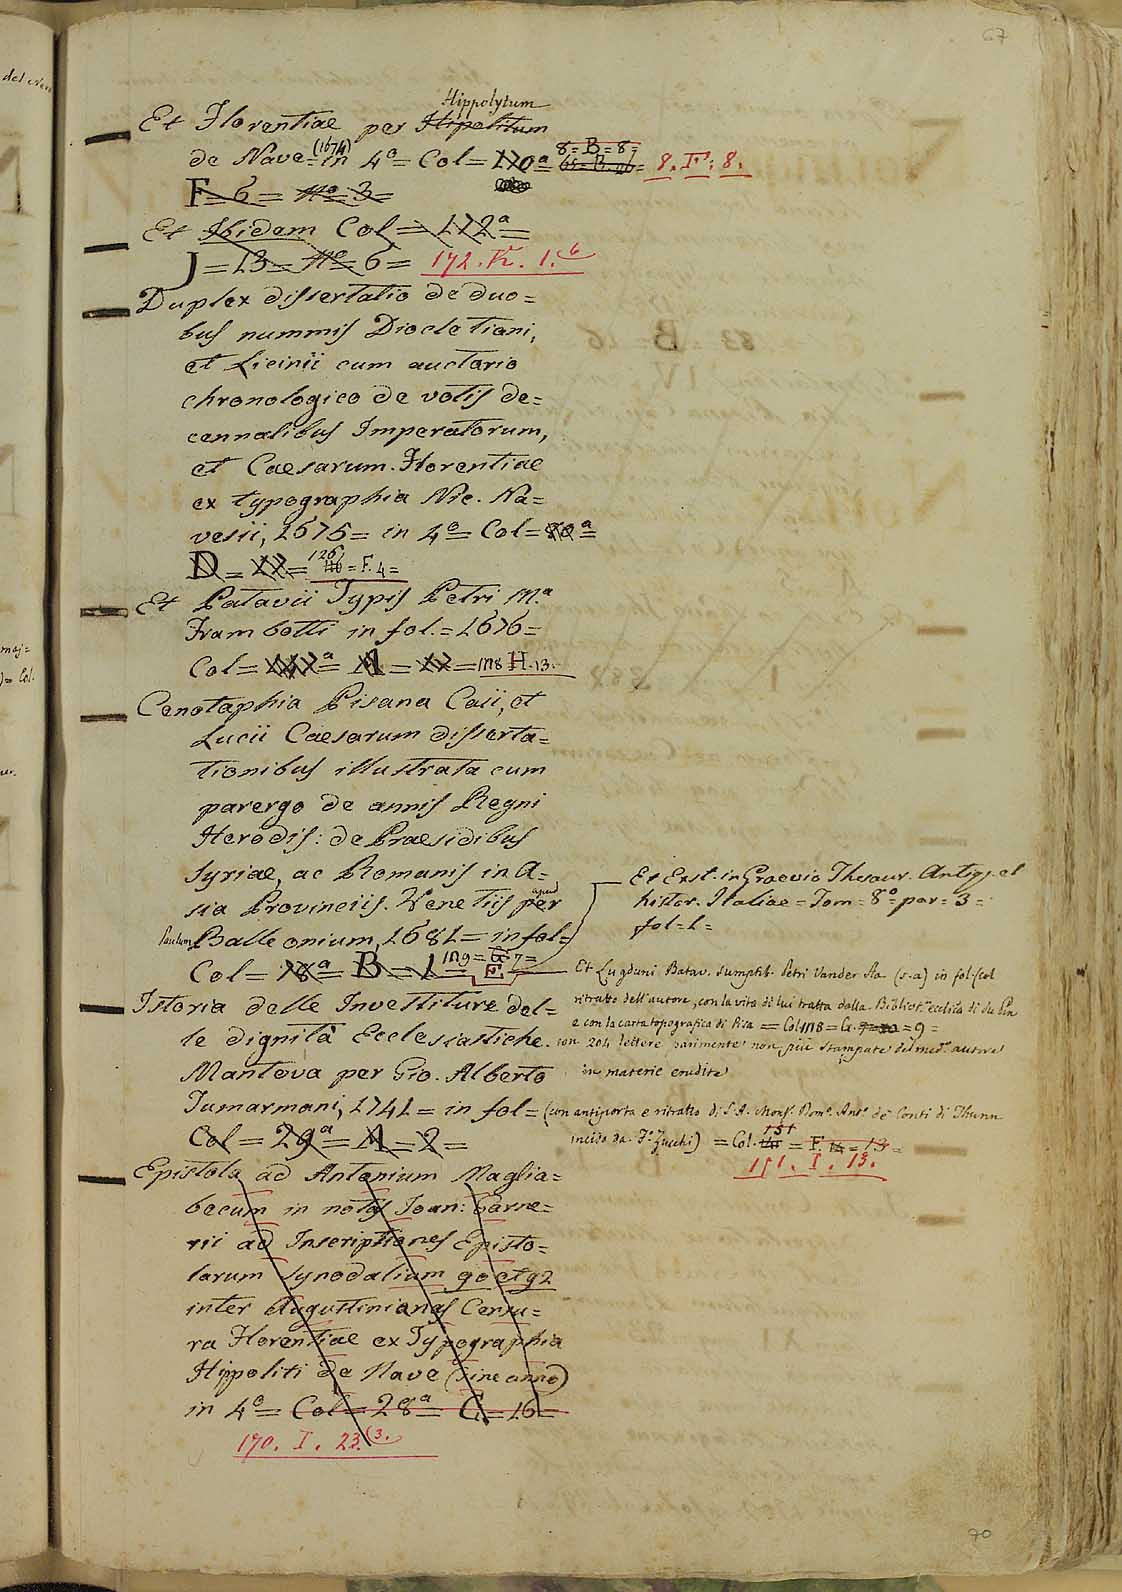 67
Hippolytum
Et Florentiae per Hipolitum
de Nave = (1674) in 4º = Col = 170ª = 8 = B = 8 = 8. F. 8.
F = 6 = nº = 3 =
Et Ibidem Col = 172ª =
J = 13 = nº = 6 = 172. K. 1. 6
Duplex dissertatio de duo=
bus nummis Diocletiani,
et Licinii cum auctario
chronologico de votis de=
cennalibus Imperatorum,
et Caesarum. Florentiae
ex typographia Nic. Na=
vesii, 1675 = in 4º = Col = 80ª =
D = 12 = 126 = F. 4 =
Et Patavii Typis Petri M.ª
Frambotti in fol. = 1676 =
Col = ª = A = = 118 H. 13.
Cenotaphia Pisana Caii, et
Lucii Caesarum disserta=
tionibus illustrata cum
parergo de annis Regni
Herodis: de Praesidibus
Syriae, ac Romanis in A=
sia Provinciis. Venetiis per apud
Paulum Balleonium, 1681 = in fol =
Col = 18ª = B = 1 = 119 = 7 =
Et Exst. in Graevio Thesaur. Antiqq. et
histor. Italiae = Tom = 8º = par = 3 =
fol = 1 =
Et Lugduni Batav. sumptib. Petri Vander Aa (s. a) in fol (col
ritratto dell'autore, con la vita di lui tratta dalla Bibliot.ª ecclica di du Pin
e con la carta topografica di Pisa = Col 118 = G. = 9 =
con 204 lettere parimente non più stampate del med.º autore
in materie erudite
Istoria delle Investiture del=
le dignità Ecclesiastiche.
Mantova per Gio. Alberto
Tumarmani, 1741 = in fol = (con antiporta e ritratto di S. A. Monsr. Domº. Antº de Conti di Thunn
inciso da F.º Zucchi) = Col. 151 = F. = 13 =
151. I. 13.
Col = 29ª = A = 2 =
Epistola ad Antonium Maglia=
becum in notis Ioan: Garne=
rii ad Inscriptiones Episto=
larum synodalium 90 et 92
inter Augustinianas Censu=
ra Florentiae ex Typographia
Hippoliti de Nave (sine anno)
in 4º = Col = 28ª = C = 16 =
170. I. 23. (3.
70